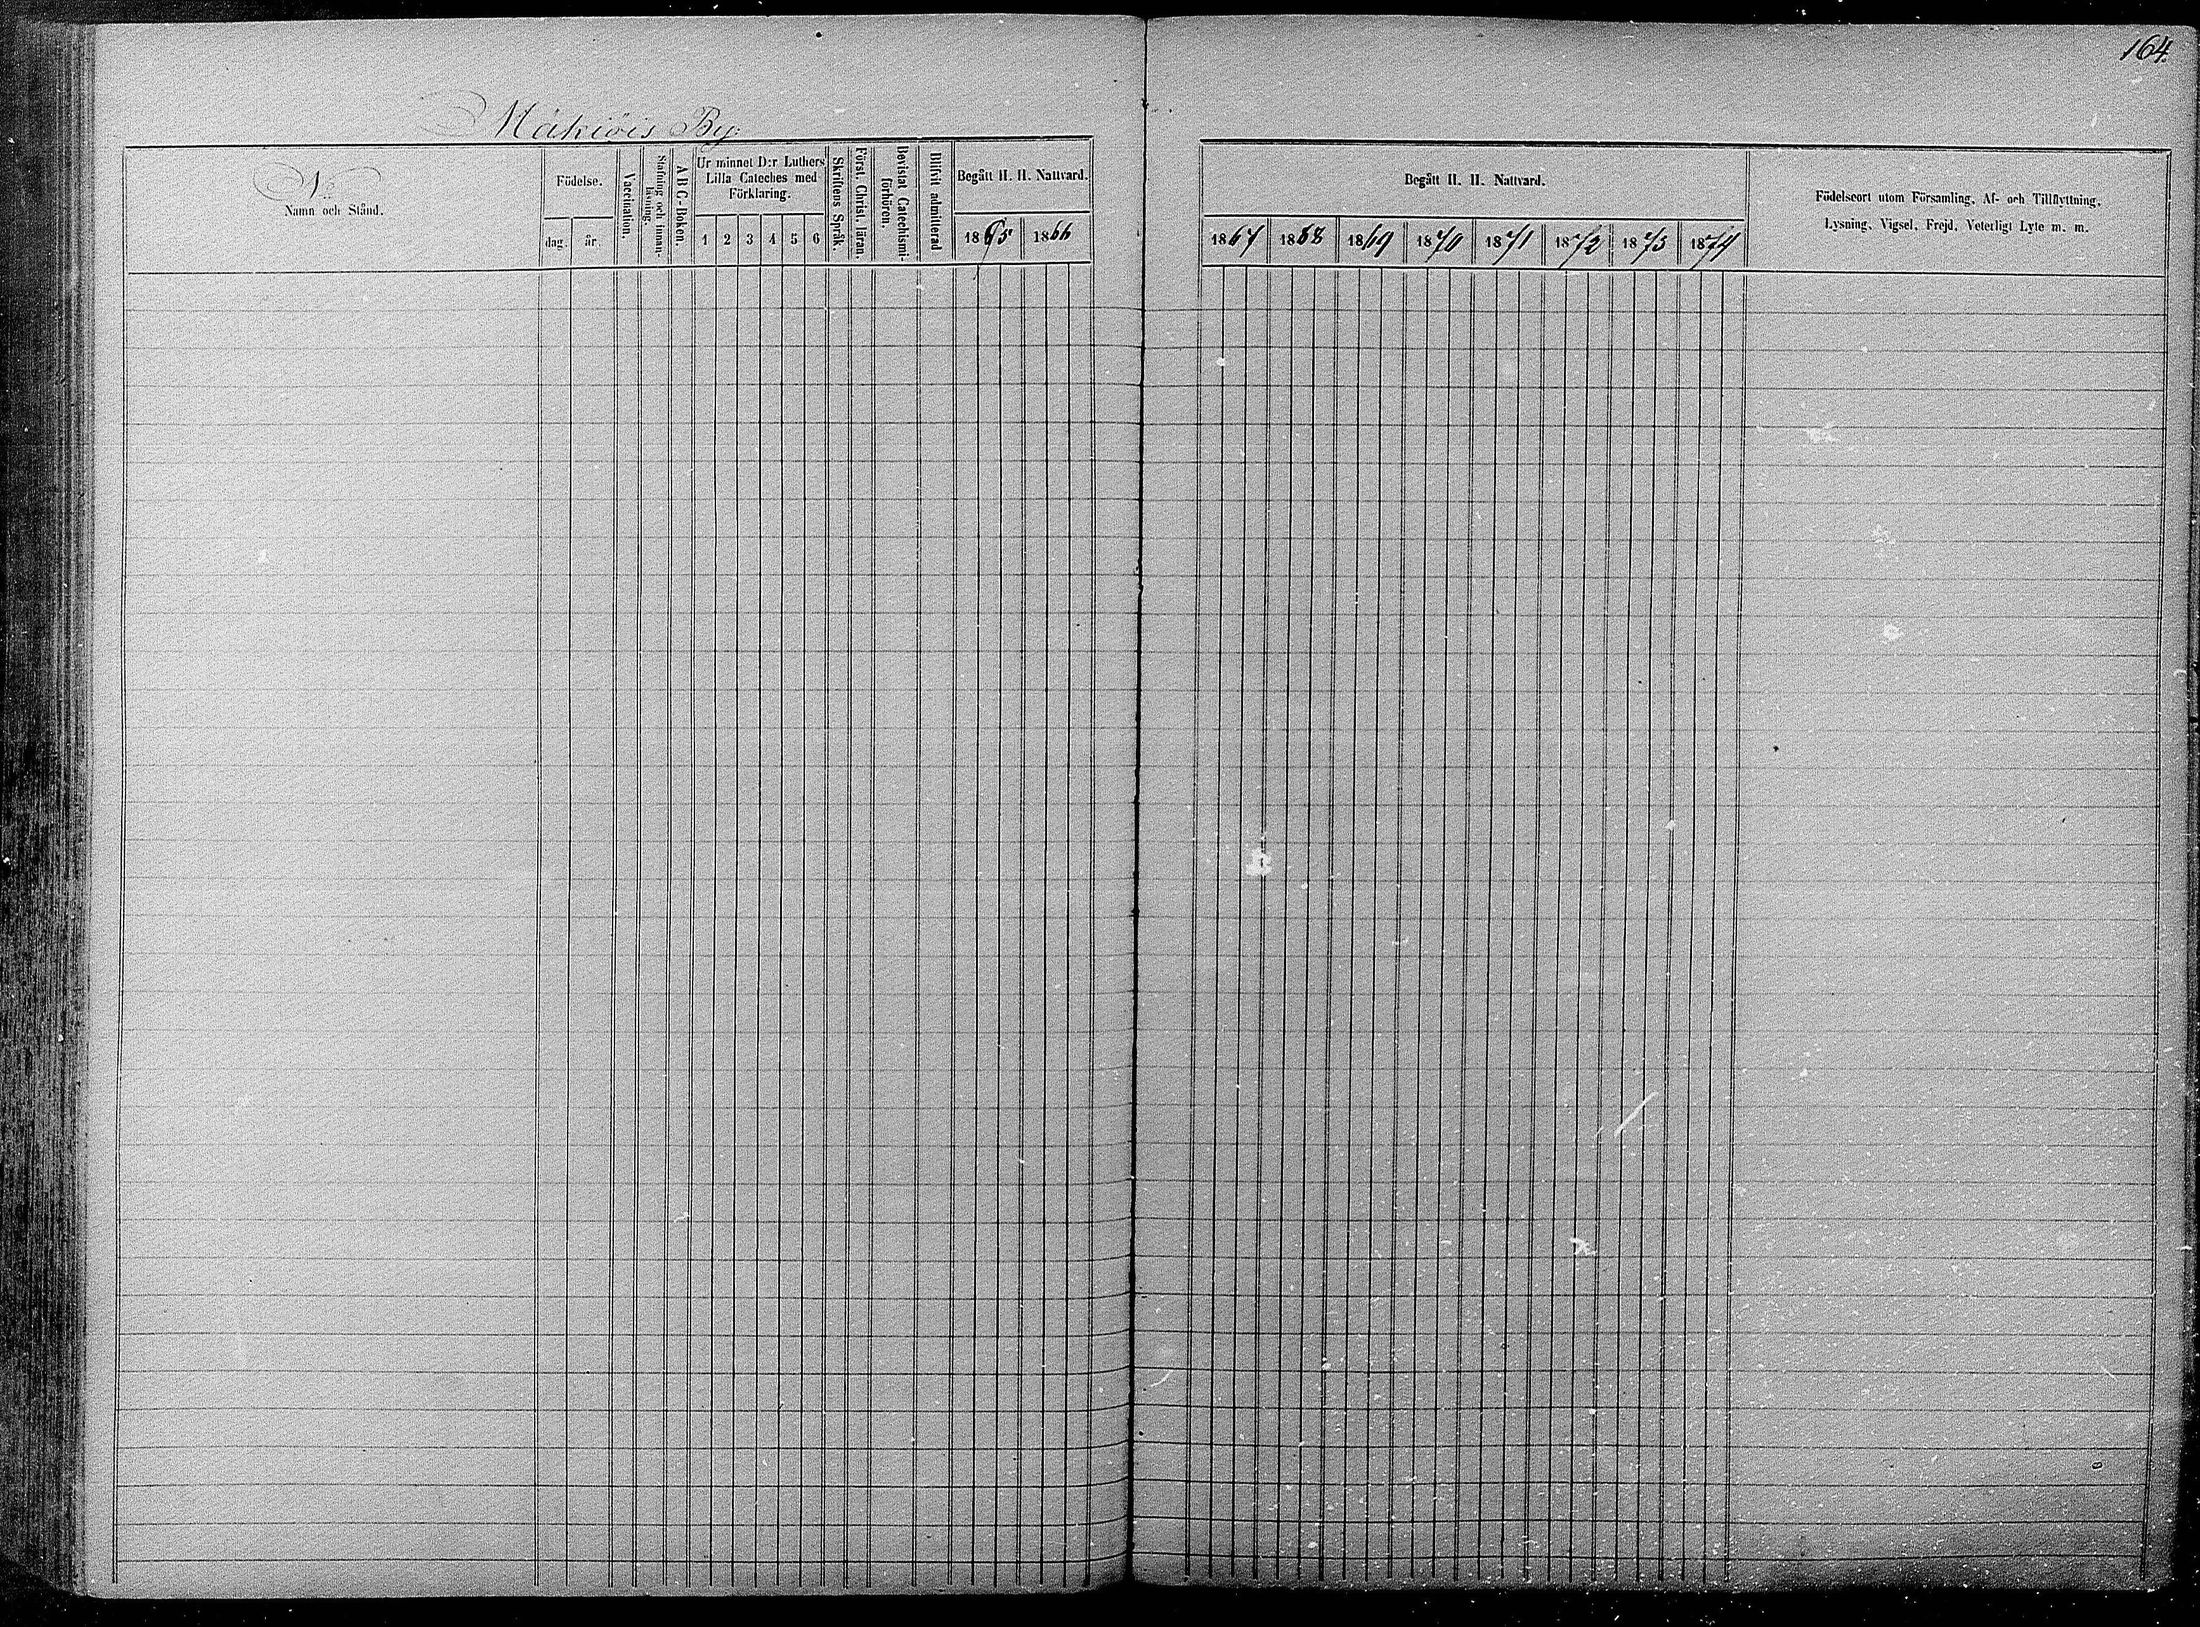 164.
Mäkiöis By:
No
Namn och Stånd.
Födelse.
dag.
år.
Vaccination.
Stafning och innan-
läsning.
A B C-Boken.
Ur minnet D:r Luthers
Lilla Cateches med
Förklaring.
1 2 3 4 5 6
Skriftens Språk.
Först. Christ. läran.
Bevistat Catechismi-
förhören.
Blifvit admitterad
Begått H. H. Nattvard.
1865 1866
Begått H. H. Nattvard.
1867 1868 1869 1870 1871 1872 1873 1874
Födelseort utom Församling, Af- och Tillflyttning,
Lysning, Vigsel, Frejd, Veterligt Lyte m. m.